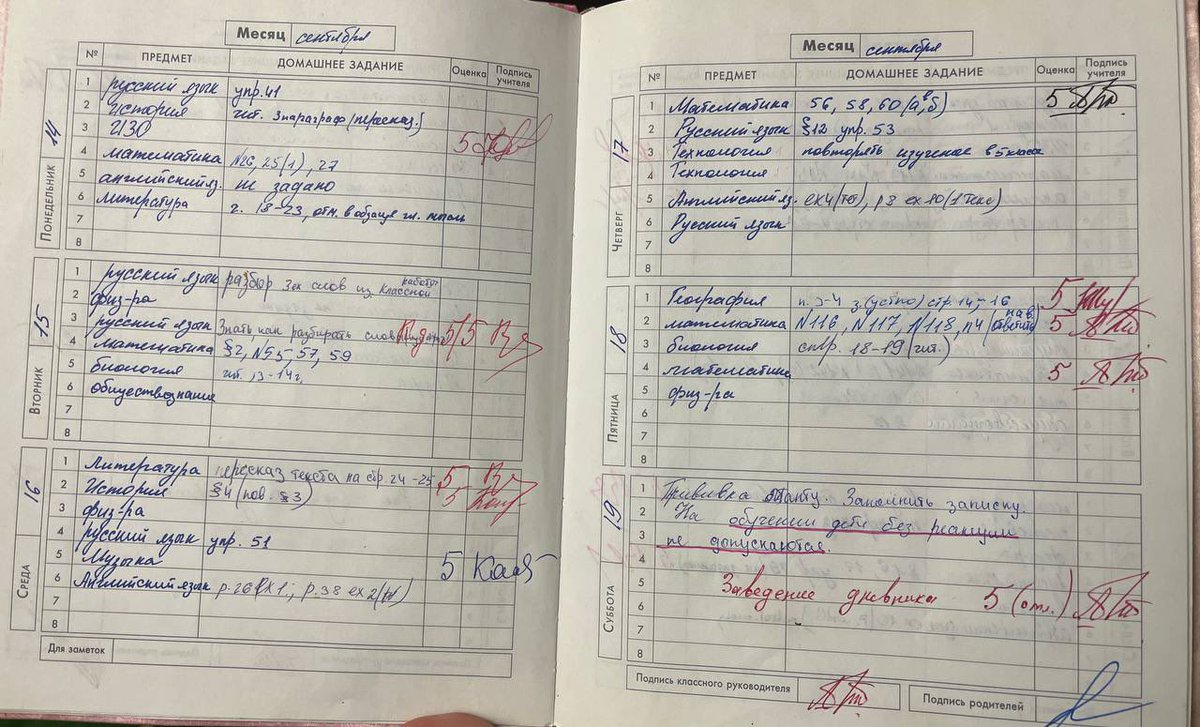 Месяц сентября
№ ПРЕДМЕТ ДОМАШНЕЕ ЗАДАНИЕ Оценка Подпись учителя
ПОНЕДЕЛЬНИК 14
1 русский язык упр. 41
2 История чит. 3 параграф (пересказ.)
3 ИЗО 5
4 математика №26, 25(1), 27
5 английский яз. не задано
6 литература 18-23,
7
8
ВТОРНИК 15
1 русский язык разбор слов из классной работы
2 физ-ра
3 русский язык Знать как разбирать слова 5/5
4 математика §2, №55, 57, 59
5 биология чит.
6 обществознание
7
8
СРЕДА 16
1 Литература пересказ текста на стр 24-25 5
2 История §4 (пов. §3) 5
3 физ-ра
4 русский язык упр. 51
5 Музыка 5
6 Английский язык p. 38 ex 2
7
8
Для заметок
Месяц сентября
№ ПРЕДМЕТ ДОМАШНЕЕ ЗАДАНИЕ Оценка Подпись учителя
ЧЕТВЕРГ 17
1 Математика 56, 58, 60 (а, в, б) 5
2 Русский язык §12 упр. 53
3 Технология повторять изученое в 5 класса
4 Технология
5 Английский яз. ex4
6 Русский язык
7
8
ПЯТНИЦА 18
1 География п. 3-4 з. (устно) стр. 14-16 5
2 математика №116, №117, №118, 5
3 биология стр. 18-19 (чит.)
4 математика 5
5 физ-ра
6
7
8
СУББОТА 19
1 Прививка Манту. Заполнить записку.
2 На обучении дети без реакции
3 не допускаются.
4
5 Заведение дневника 5 (отл.)
6
7
8
Подпись классного руководителя
Подпись родителей